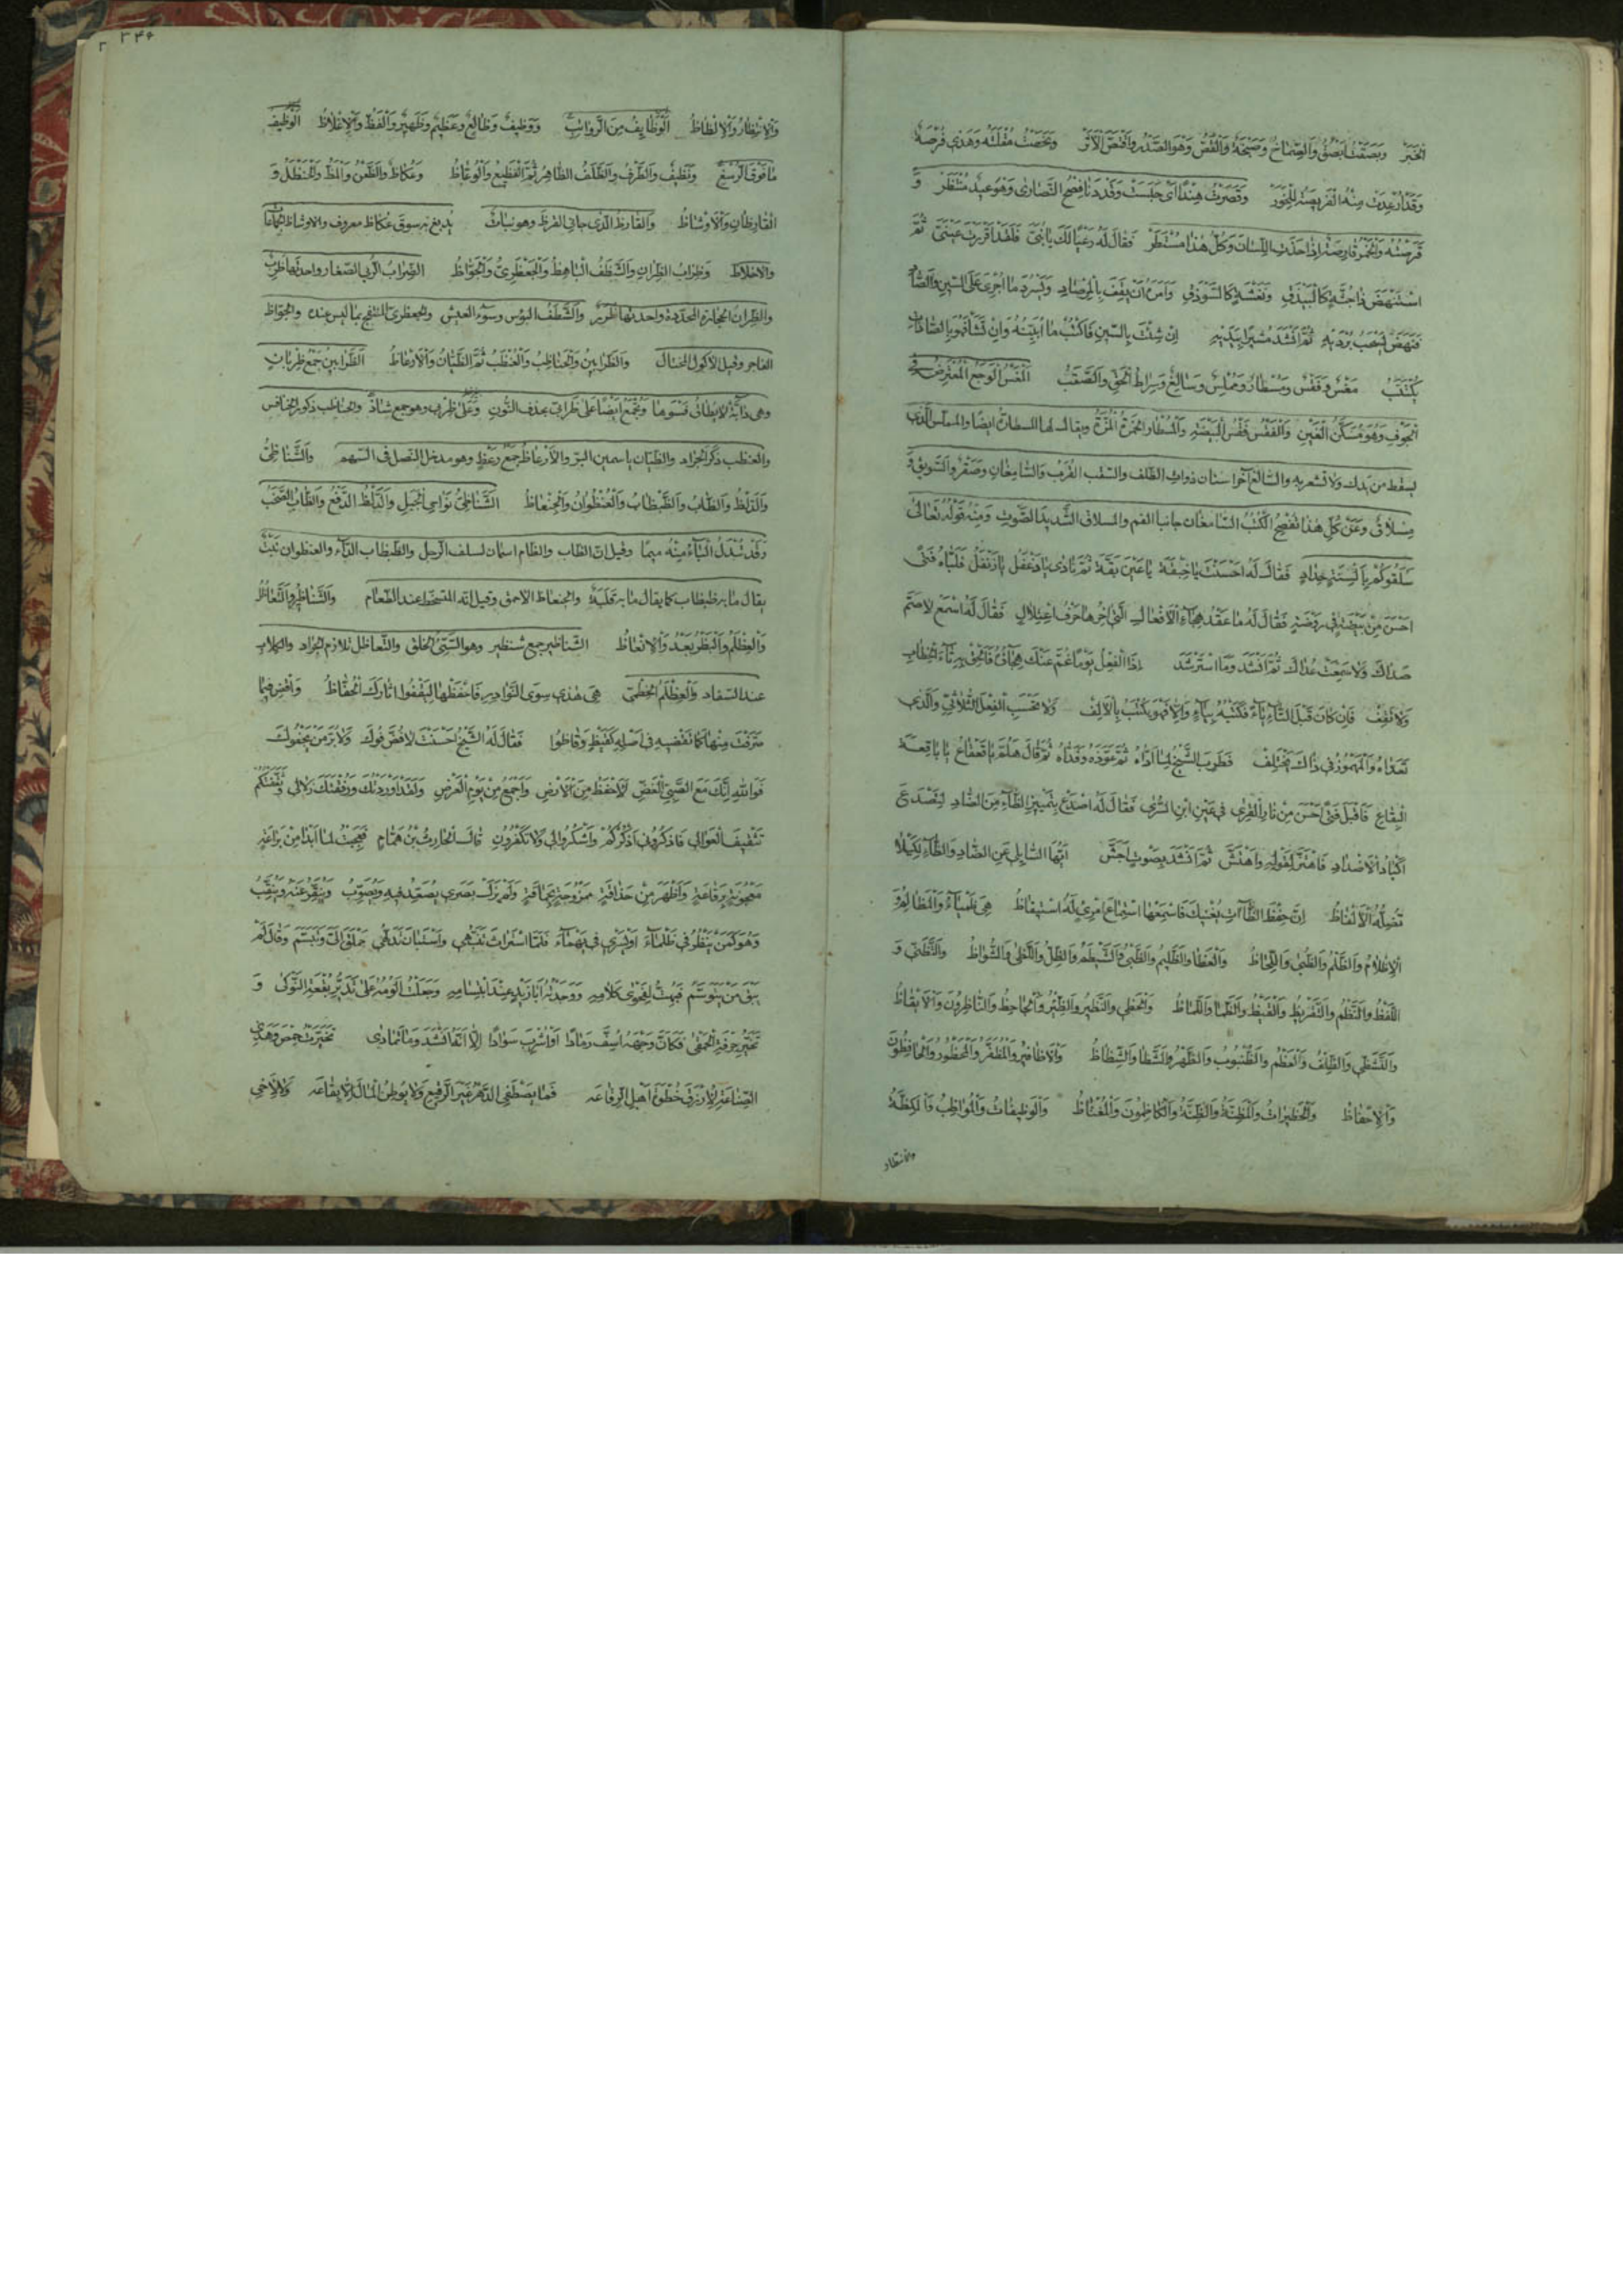 الْخَبَرْ وَبَصَقْتُ اَبْصُقُ وَالصِّمَاخُ وَصَنْجَةٌ وَالْقَصُّ وَهُوَ الصَّدْرُ وَاقْتَصَّ الْاَثَرْ وَبَخَصْتُ مُقْلَتَهُ وَهٰذِي فُرْصَةٌ
وَقَدْ اُرْعِدَتْ مِنْهُ الْفَرِيصَةُ لِلْخَوَرْ وَقَصَرْتُ هِنْدًا اَيْ حَبَسْتُ وَقَدْ دَنَا فِصْحُ النَّصَارٰى وَهُوَ عِيدٌ مُنْتَظَرْ وَ
قَرَصْتُهُ وَالْخَمْرُ قَارِصَةٌ اِذَا حَذَتِ اللِّسَانَ وَكُلُّ هٰذَا مُسْتَطَرْ فَقَالَ لَهُ رَعْيًا لَكَ يَا بُنَيَّ فَلَقَدْ اَقْرَرْتَ عَيْنَيَّ ثُمَّ
اسْتَنْهَضَ ذَا جُثَّةٍ كَالْبَيْذَقِ وَنَعْشَةٍ كَالسَّوْذَقِ وَاَمَرَهُ اَنْ يَقِفَ بِالْمِرْصَادِ وَيَسْرُدَ مَا اُجْرِيَ عَلَى السِّينِ وَالصَّادِ
فَنَهَضَ يَسْحَبُ بُرْدَيْهِ ثُمَّ اَنْشَدَ مُشِيرًا بِيَدَيْهِ اِنْ شِئْتَ بِالسِّينِ فَاكْتُبْ مَا اُبَيِّنُهُ وَاِنْ تَشَأْ فَهُوَ بِالصَّادَاتِ
يُكْتَتَبُ مَغْسٌ وَفَقْسٌ وَمُسْطَارٌ وَمُمْلِسٌ وَسَالِغٌ وَسِرَاطُ الْحَقِّ وَالسَّقَبُ الْمَغْسُ الْوَجَعُ الْمُعْتَرِضُ فِي
الْجَوْفِ وَهُوَ مُسَكَّنُ الْغَيْنِ وَالْفَقْسُ فَقْسُ الْبَيْضَةِ وَالْمُسْطَارُ الْخَمْرَةُ الْمُزَّةُ ويقال لها المسطارة ايضًا والمملس الَّذِي
يسقط من يدك ولا تشعر به والسالغ آخر اسنان ذوات الظلف والسقب القرب وَالسَّامِغَانِ وَسَقْرٌ وَالسَّوِيقُ وَ
مِسْلَاقٌ وَعَنْ كُلِّ هٰذَا تُفْصِحُ الْكُتُبُ السّامغان جانبا الفم والمسلاق الشّديد الصَّوتِ وَمِنْهُ قَوْلُهُ تَعَالىٰ
سَلَقُوكُمْ بِاَلْسِنَةٍ حِدَادٍ فَقَالَ لَهُ اَحْسَنْتَ يَا حَبَقَةُ يَا عَيْنَ بَقَّةَ ثُمَّ نَادٰى يَا دَغْفَلُ يَا زَنْفَلُ فَلَبَّاهُ فَتًى
اَحْسَنُ مِنْ بَيْضَةٍ فِي رَوْضَةٍ فَقَالَ لَهُ مَا عَقْدُ هِجَاءِ الْاَفْعَالِ الَّتِي اٰخِرُهَا حَرْفُ اعْتِلَالٍ فَقَالَ لَهُ اسْمَعْ لَا صَمَّ
صَدَاكَ وَلَا سَمِعَتْ عِدَاكَ ثُمَّ اَنْشَدَ وَمَا اسْتَرْشَدَ اِذَا الْفِعْلُ يَوْمًا غُمَّ عَنْكَ هِجَاؤُهُ فَاَلْحِقْ بِهِ تَاءَ الْخِطَابِ
وَلَا تَقِفْ فَاِنْ كَانَ قَبْلَ التَّاءِ يَاءٌ فَكَتْبُهُ بِيَاءٍ وَاِلَّا فَهُوَ يُكْتَبُ بِالْاَلِفْ وَلَا تَحْسَبِ الْفِعْلَ الثُّلَاثِيَّ وَالَّذِي
تَعَدَّاهُ وَالْمَهْمُوزَ فِي ذَاكَ يَخْتَلِفْ فَطَرِبَ الشَّيْخُ لِمَا اَدَّاهُ ثُمَّ عَوَّذَهُ وَفَدَّاهُ ثُمَّ قَالَ هَلُمَّ يَا قَعْقَاعُ يَا بَاقِعَةَ
الْبِقَاعِ فَاَقْبَلَ فَتًى اَحْسَنُ مِنْ نَارِ الْقِرٰى فِي عَيْنِ ابْنِ السُّرٰى فَقَالَ لَهُ اصْدَعْ بِتَمْيِيزِ الظَّاءِ مِنَ الضَّادِ لِتَصْدَعَ
اَكْبَادَ الْاَضْدَادِ فَاهْتَزَّ لِقَوْلِهِ وَاهْتَشَّ ثُمَّ اَنْشَدَ بِصَوْتٍ اَجَشَّ اَيُّهَا السَّايِلِي عَنِ الضَّادِ وَالظَّاءِ لِكَيْلَا
تُضِلَّهُ الْاَلْفَاظُ اِنَّ حِفْظَ الظَّاآتِ يُغْنِيكَ فَاسْمَعْهَا اسْتِمَاعَ امْرِئٍ لَهُ اسْتِيقَاظُ هِيَ ظَمْيَاءُ وَالْمَظَالِمُ وَ
الْاِظْلَامُ وَالظَّلْمُ وَالظُّبٰى وَاللِّحَاظُ وَالْعَظَا وَالظَّلِيمُ وَالظَّبْيُ وَالشَّيْظَمُ وَالظِّلُّ وَاللَّظٰى وَالشُّوَاظُ وَالتَّظَنِّي وَ
اللَّفْظُ وَالنَّظْمُ وَالتَّقْرِيظُ وَالْقَيْظُ وَالظَّمَا وَاللَّمَاظُ وَالْحَظَى وَالنَّظِيرُ وَالظِّئْرُ وَالْجَاحِظُ وَالنَّاظِرُونَ وَالْاَيْقَاظُ
وَالتَّشَظِّي وَالظِّلْفُ وَالْعَظْمُ وَالظُّنْبُوبُ وَالظَّهْرُ وَالشَّظَا وَالشِّظَاظُ وَالْاَظَافِيرُ وَالْمُظَفَّرُ وَالْمَحْظُورُ وَالْحَافِظُونَ
وَالْاِحْفَاظُ وَالْحَظِيرَاتُ وَالْمَظِنَّةُ وَالظِّنَّةُ وَالْكَاظِمُونَ وَالْمُغْتَاظُ وَالْوَظِيفَاتُ وَالْمُوَاظِبُ وَالْكِظَّةُ
والانتظار
٣٤٤
وَالْاِنْتِظَارُ وَالْاِلْظَاظُ اَلْوَظَايِفُ مِنَ الرَّوَاتِبِ وَوَظِيفٌ وَظَالِعٌ وَعَظِيمٌ وَظَهِيرٌ وَالْفَظُّ وَالْاِغْلَاظُ الْوَظِيفُ
مَا فَوْقَ الرُّسْغِ وَنَظِيفٌ وَالظَّرْفُ وَالظَّلَفُ الظَّاهِرُ ثُمَّ الْفَظِيعُ وَالْوُعَّاظُ وَعُكَاظٌ وَالظَّعْنُ وَالْمَظُّ وَالْحَنْظَلُ وَ
الْقَارِظَانِ وَالْاَوْشَاظُ والقارظ الّذي جاني القرظ وهو نبات يُدبغ به سوق عكاظ معروف والاوشاظ الجماعات
والاخلاط وَظِرَابُ الظِّرَّانِ وَالشَّظَفُ الْبَاهِظُ وَالْجَعْظَرِيُّ وَالْجَوَّاظُ الظّراب الرُّبي الصّغار واحدتها ظَرِبٌ
والظّران الحجارة المحدّدة واحدتها ظرير والشّظف البؤس وسوء العيش والجعظريّ المنتفخ بما ليس عنده والجوّاظ
الفاجر وقيل الاكول المختال وَالظَّرَابِينُ وَالْحَنَاظِبُ وَالْعُنْظَبُ ثُمَّ الظَّيَّانُ وَالْاَرْعَاظُ الظَّرَابِينُ جَمْعُ ظَرِبَانٍ
وهي دابّة لا يطاق فسوها وَيُجْمَعُ ايضًا على ظرابي بحذف النّون وَعَلىٰ ظِرْبٰى وهو جمع شاذّ والحناظب ذكور الخنافس
والعنظب ذكر الجراد والظّيّان ياسمين البرّ والارعاظ جمع رعظ وهو مدخل النّصل في السّهم وَالشَّنَاظِي
وَالدَّلْظُ وَالظَّابُ وَالظَّبْظَابُ وَالْعُنْظُوَانُ وَالْجِنْعَاظُ الشَّنَاظِيُّ نَوَاحِي الْجَبَلِ وَالدَّلْظُ الدَّفْعُ وَالظَّابُ الصَّخَبُ
وَقَدْ تُبْدَلُ الْبَاءُ مِنْهُ مِيمًا وقيل انّ الظّاب والظّام اسمان لسلف الرّجل والظّبظاب الدّاء والعنظوان نَبْتٌ
يقال ما به ظبظاب كما يقال ما به قَلَبَةٌ والجنعاظ الاحمق وقيل انّه المتسخّط عند الطّعام وَالشَّنَاظِيرُ وَالتَّعَاظُلُ
وَالْعِظْلِمُ وَالْبَظْرُ بَعْدُ وَالْاِنْعَاظُ الشّناظير جمع شنظير وهو السّيّئ الخلق والتّعاظل تلازم الجراد والكلاب
عند السّفاد وَالْعِظْلِمُ الْخِطْمِيُّ هِيَ هٰذِي سِوَى النَّوَادِرِ فَاحْفَظْهَا لِيَقْفُوا اٰثَارَكَ الْحُفَّاظُ وَاقْضِ فِيمَا
صَرَّفْتَ مِنْهَا كَمَا تَقْضِيهِ فِي اَصْلِهِ كَقَيْظٍ وَقَاظُوا فَقَالَ لَهُ الشَّيْخُ اَحْسَنْتَ لَا فُضَّ فُوكَ وَلَا بُرَّ مَنْ يَجْفُوكَ
فَوَاللّٰهِ اِنَّكَ مَعَ الصِّبَى الْغَضِّ لَاَحْفَظُ مِنَ الْاَرْضِ وَاَجْمَعُ مِنْ يَوْمِ الْعَرْضِ وَلَقَدْ اَوْرَدْتُكَ وَرُفْقَتَكَ زُلَالِي وَثَقَّفْتُكُمْ
تَثْقِيفَ الْعَوَالِي فَاذْكُرُونِي اَذْكُرْكُمْ وَاشْكُرُوا لِي وَلَا تَكْفُرُونِ قَالَ الْحَارِثُ بْنُ هَمَّامٍ فَعَجِبْتُ لِمَا اَبْدَا مِنْ بَرَاعَةٍ
مَعْجُونَةٍ بِرَقَاعَةٍ وَاَظْهَرَ مِنْ حَذَاقَةٍ مَمْزُوجَةٍ بِحَمَاقَةٍ وَلَمْ يَزَلْ بَصَرِي يُصَعِّدُ فِيهِ وَيُصَوِّبُ وَيُنَقِّرُ عَنْهُ وَيُنَقِّبُ
وَهُوَ كَمَنْ يَنْظُرُ فِي ظَلْمَاءَ اَوْ يَسْرِي فِي بَهْمَاءَ فَلَمَّا اسْتَرَاثَ تَنَبُّهِي وَاسْتَبَانَ تَدَلُّهِي حَمْلَقَ اِلَيَّ وَتَبَسَّمَ وَقَالَ لَمْ
يَبْقَ مَنْ يَتَوَسَّمُ فَبُهِتُّ لِفَحْوٰى كَلَامِهِ وَوَجَدْتُهُ اَبَا زَيْدٍ عِنْدَ ابْتِسَامِهِ وَجَعَلْتُ اَلُومُهُ عَلٰى تَدَيُّرِ بُقْعَةِ النَّوْكٰى وَ
تَخَيُّرِ حِرْفَةِ الْحَمْقٰى فَكَاَنَّ وَجْهَهُ اُسِفَّ رَمَادًا اَوْ اُشْرِبَ سَوَادًا اِلَّا اَنَّهُ اَنْشَدَ وَمَا تَمَادٰى تَخَيَّرْتُ حِمْصَ وَهٰذِي
الصِّنَاعَةَ لِاُرْزَقَ حُظْوَةَ اَهْلِ الرَّقَاعَه فَمَا يَصْطَفِي الدَّهْرُ غَيْرَ الرَّقِيعِ وَلَا يُوطِنُ الْمَالَ اِلَّا بِقَاعَه وَلَا لِاَخِي